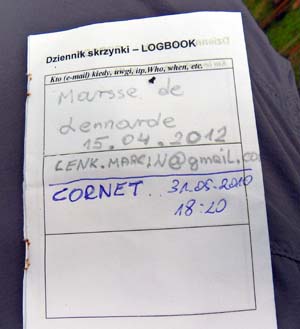 Dziennik skrzynki – LOGBOOK
Kto (e-mail) kiedy, uwgi, itp, Who, when, etc.
Marsse de
Lennarde
15.04.2012
LENK.MARCIN@gmail.co
CORNET 31.05.2010
18:20